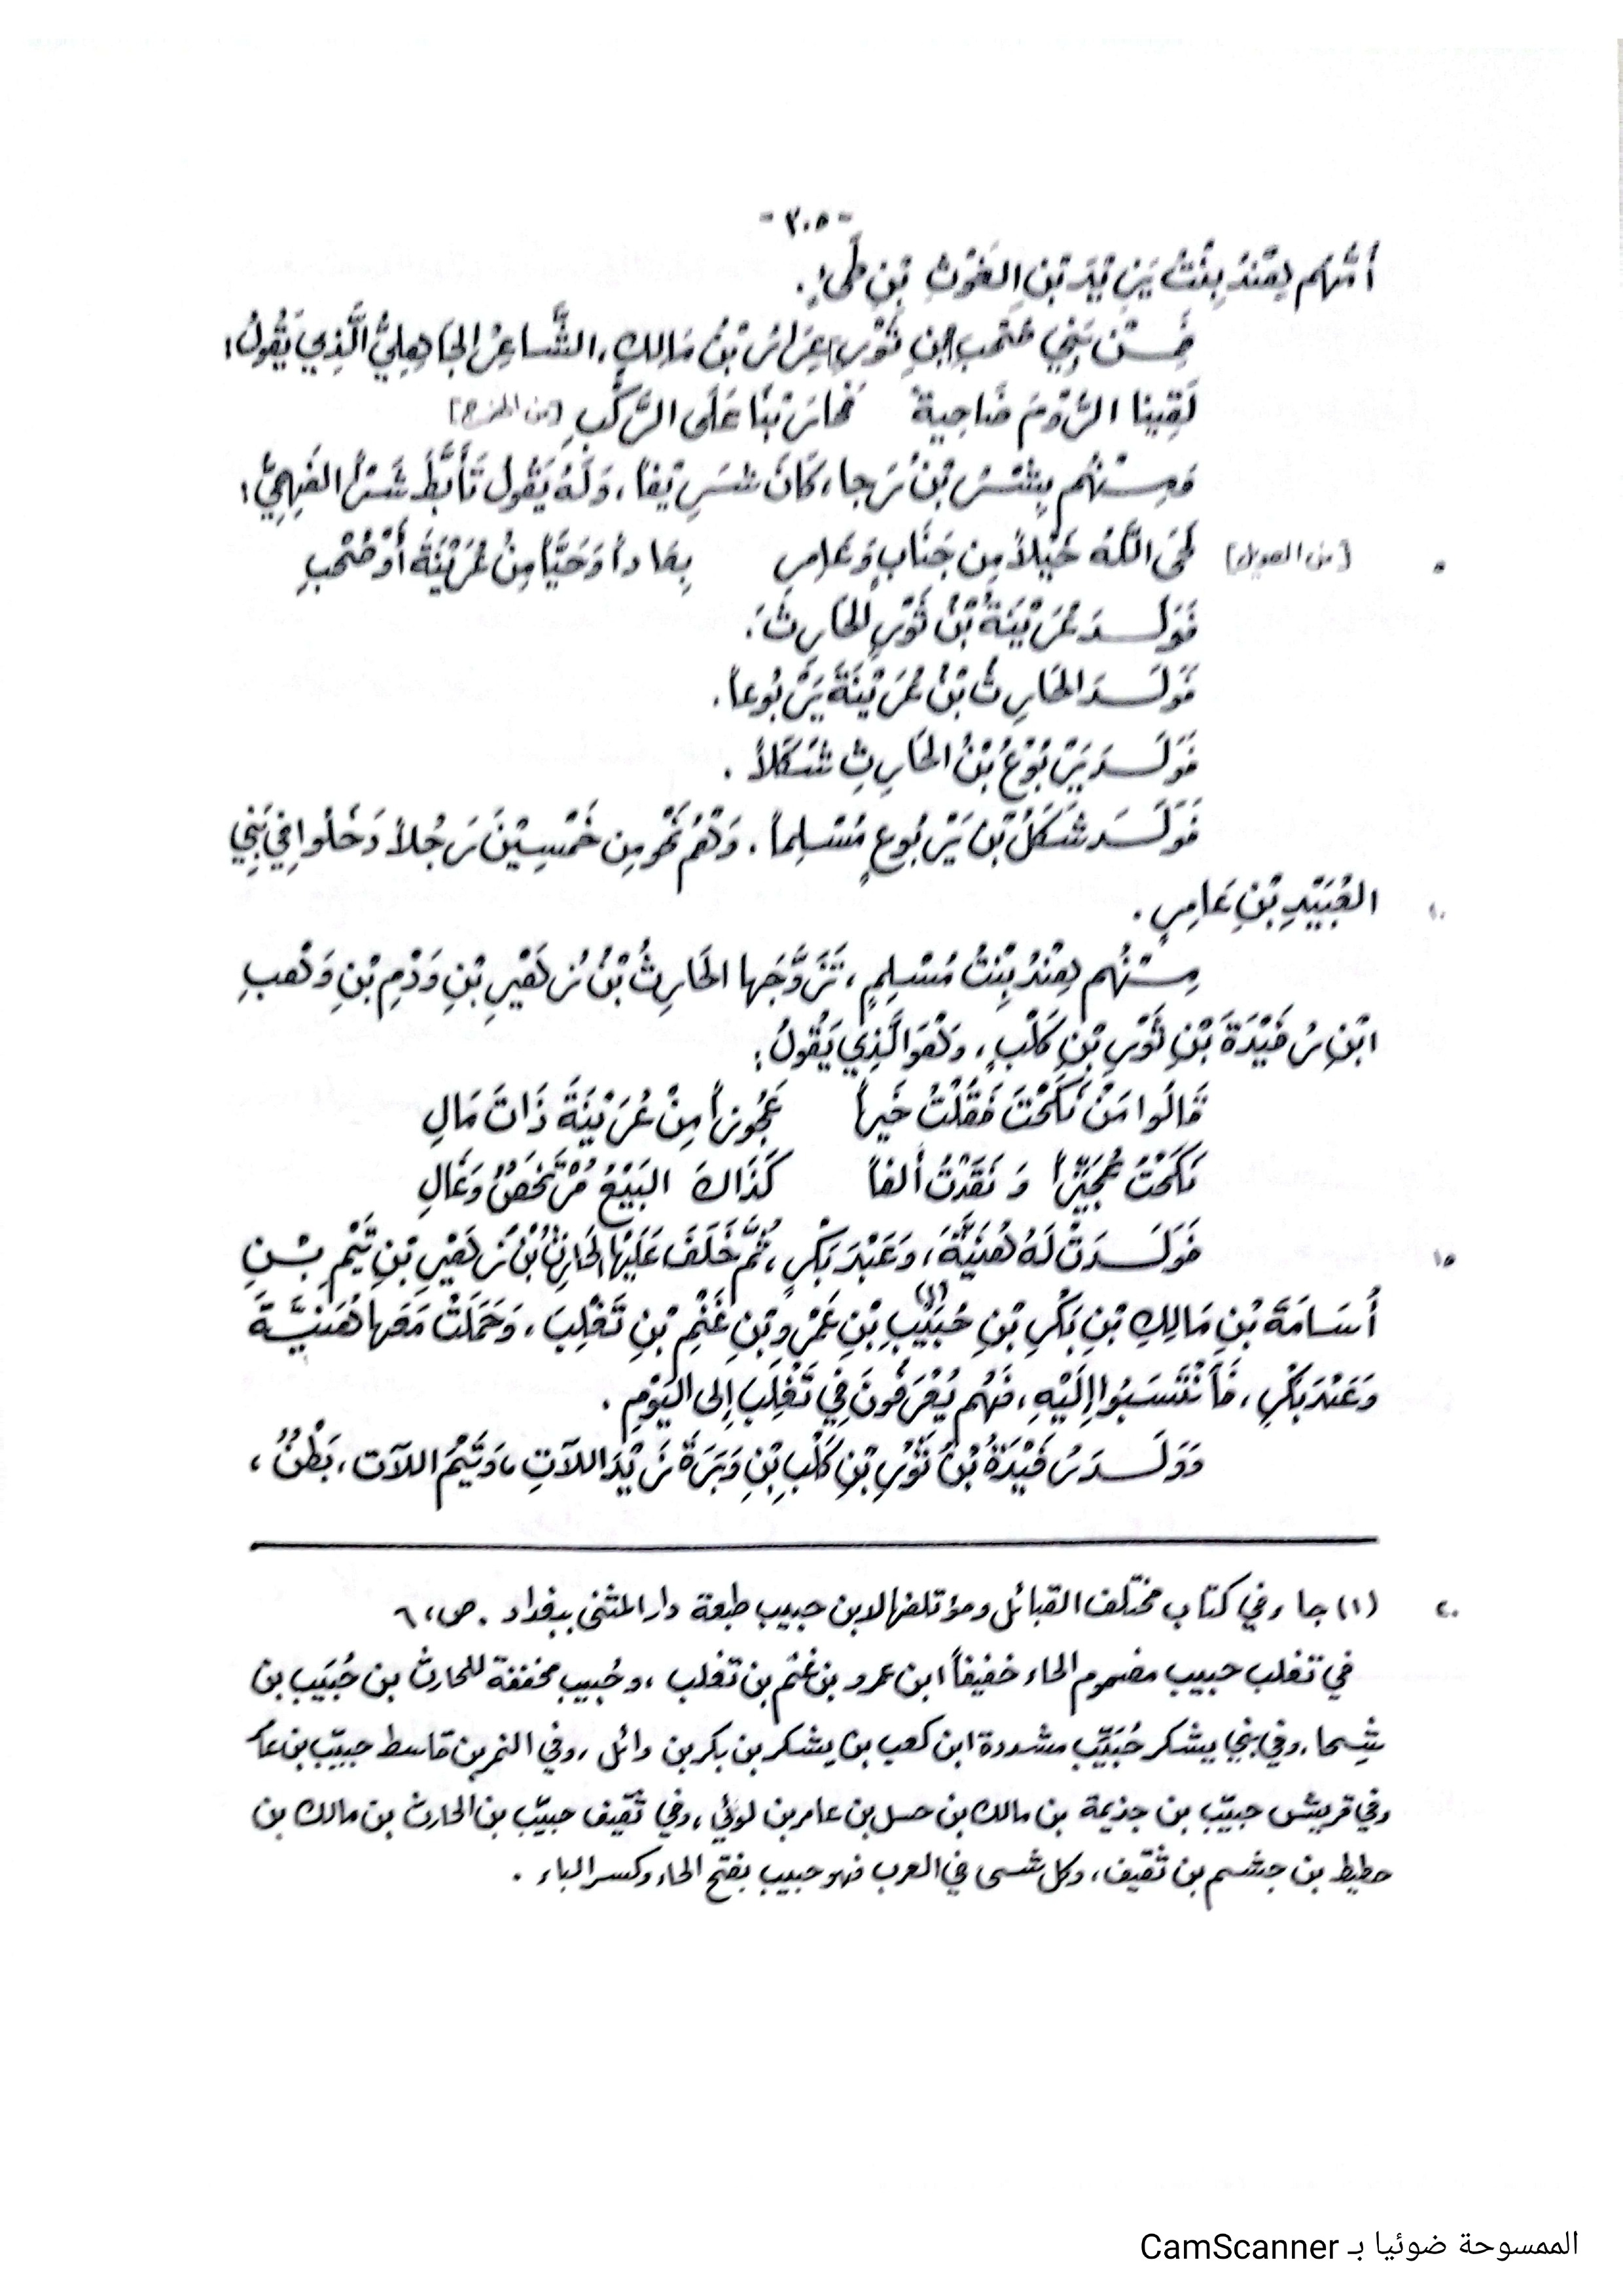 - ٣٠٥ -
أُمُّهُم هِنْدُ بِنْتُ يَزِيْدَ بْنِ الغَوْثِ بْنِ طَيِّءٍ.
فَمِـنْ بَنِي صُحْبِ بْنِ ثَوْرٍ عِرَارُ بْنُ مَالِكٍ، الشَّاعِرُ الجَاهِلِيُّ الَّذِي يَقُولُ:
لَقِينا الرُّوْمَ ضَاحِيةً عَلَى الرَّكْبِ [من الهزج]
وَمِـنْهُم بِشْرُ بْنُ رَجا، كَانَ شَرِيْفاً، وَلَهُ يَقُولُ تَأَبَّطَ شَرَّاً الفَهِمِيُّ:
٥ [من الطويل] لَحَى اللَّهُ خَيْلاً مِن جَنَابٍ وَعَامِرٍ بِعَاداً وَحَيَّاً مِنْ عُرَيْنَةَ أَوْ صُحْبِ
فَوَلَـدَ عُرَيْنَةُ بْنُ ثَوْرٍ الحَارِثَ.
فَوَلَـدَ الحَارِثُ بْنُ عُرَيْنَةَ يَرْبُوعاً.
فَوَلَـدَ يَرْبُوْعُ بْنُ الحَارِثِ شَكَلاً.
فَوَلَـدَ شَكَلُ بْنُ يَرْبُوعٍ مُسْلِماً. وَهُمْ نَحْو مِن خَمْسِيْنَ رَجُلاً دَخَلُوا فِي بَنِي
١٠ العُبَيْدِ بْنِ عَامِرٍ.
مِـنْهُم هِنْدُ بِنْتُ مُسْلِمٍ، تَزَوَّجَها الحَارِثُ بْنُ زُهَيْرِ بْنِ وَدْمِ بْنِ وَهْبِ
ابْنِ رُفَيْدَةَ بْنِ ثَوْرِ بْنِ كَلْبٍ، وَهُوَ الَّذِي يَقُولُ:
قَالُوا مَنْ نَكَحْتَ فَقُلْتُ خَيراً عَجُوزاً مِنْ عُرَيْنَةَ ذَاتَ مَالِ
نَكَحْتُ عُجَيِّزاً وَ نَقَدْتُ أَلفاً كَذَاكَ البَيْعُ مُرْتَخَصٌ وَغَالِ
١٥ فَوَلَـدَتْ لَهُ هُنَيَّةَ، وَعَبْدَ بَكْرٍ، ثُمَّ خَلَفَ عَلَيْها الحَارِثُ بْنُ زُهَيْرِ بْنِ تَيْمِ بْـنِ
أُسَامَةَ بْنِ مَالِكِ بْنِ بَكْرِ بْنِ حُبَيْبِ (١) بْنِ عَمْرِو بْنِ غَنْمِ بْنِ تَغْلِبَ، وَحَمَلَتْ مَعَها هُنَيَّةَ
وَعَبْدَ بَكْرٍ، فَانْتَسَبُوا إِلَيْهِ، فَهُم يُعْرَفُونَ فِي تَغْلِبَ إِلى اليَوْمِ.
وَوَلَـدَ رُفَيْدَةُ بْنُ ثَوْرِ بْنِ كَلْبِ بْنِ وَبَرَةَ زَيْدَ اللآتِ، وَتَيْمَ اللآتِ، بَطْنٌ،
٢٠ (١) جاء في كتاب مختلف القبائل ومؤتلفها لابن حبيب طبعة دار المثنى ببغداد. ص، ٦
في تغلب حبيب مضموم الحاء خفيفاً ابن عمرو بن غنم بن تغلب، وحُبيب مخففة للحارث بن حُبَيب بن
شِحا، وفي بني يشكر حُبَيِّب مشددة ابن كعب بن يشكر بن بكر بن وائل، وفي النمر بن قاسط حبيِّب بن عا
وفي قريش حبيِّب بن جذيمة بن مالك بن حسل بن عامر بن لوئي، وفي ثقيف حبيِّب بن الحارث بن مالك بن
حطيط بن جشم بن ثقيف، وكل شى في العرب فهو حبيب بفتح الحاء وكسر الباء.
الممسوحة ضوئيا بـ CamScanner